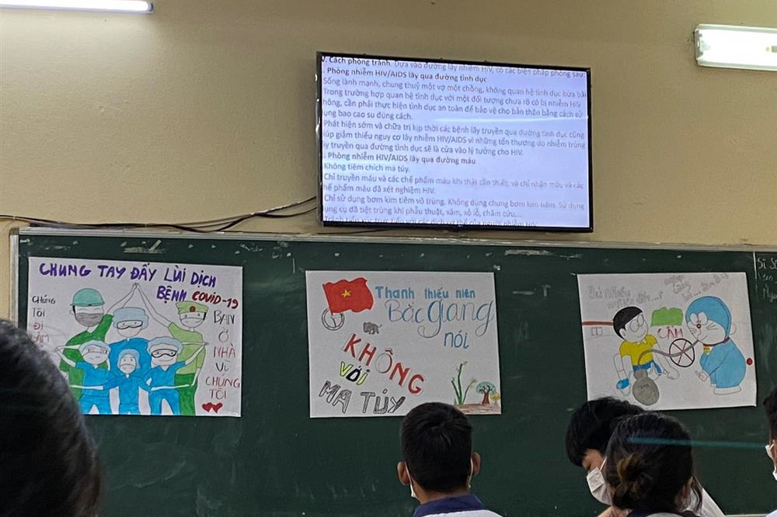 V. Cách phòng tránh. Dựa vào đường lây nhiễm HIV, có các biện pháp phòng sau:
Phòng nhiễm HIV/AIDS lây qua đường tình dục
Sống lành mạnh, chung thuỷ một vợ một chồng, không quan hệ tình dục bừa bãi
Trong trường hợp quan hệ tình dục với một đối tượng chưa rõ có bị nhiễm HIV
hông, cần phải thực hiện tình dục an toàn để bảo vệ cho bản thân bằng cách sử
ụng bao cao su đúng cách.
Phát hiện sớm và chữa trị kịp thời các bệnh lây truyền qua đường tình dục cũng
iúp giảm thiểu nguy cơ lây nhiễm HIV/AIDS vì những tổn thương do nhiễm trùng
ây truyền qua đường tình dục sẽ là cửa vào lý tưởng cho HIV.
Phòng nhiễm HIV/AIDS lây qua đường máu
Không tiêm chích ma túy.
Chỉ truyền máu và các chế phẩm máu khi thật cần thiết, và chỉ nhận máu và các
hế phẩm máu đã xét nghiệm HIV.
Chỉ sử dụng bơm kim tiêm vô trùng. Không dùng chung bơm kim tiêm. Sử dụng
ụng cụ đã tiệt trùng khi phẫu thuật, xăm, xỏ lỗ, châm cứu...
CHUNG TAY ĐẨY LÙI DỊCH
BỆNH COVID-19
CHÚNG
TÔI
ĐI
LÀM
BẠN
Ở
NHÀ
VÌ
CHÚNG
TÔI
Thanh thiếu niên
Bắc Giang
nói
KHÔNG
VỚI
MA TÚY
CẤM